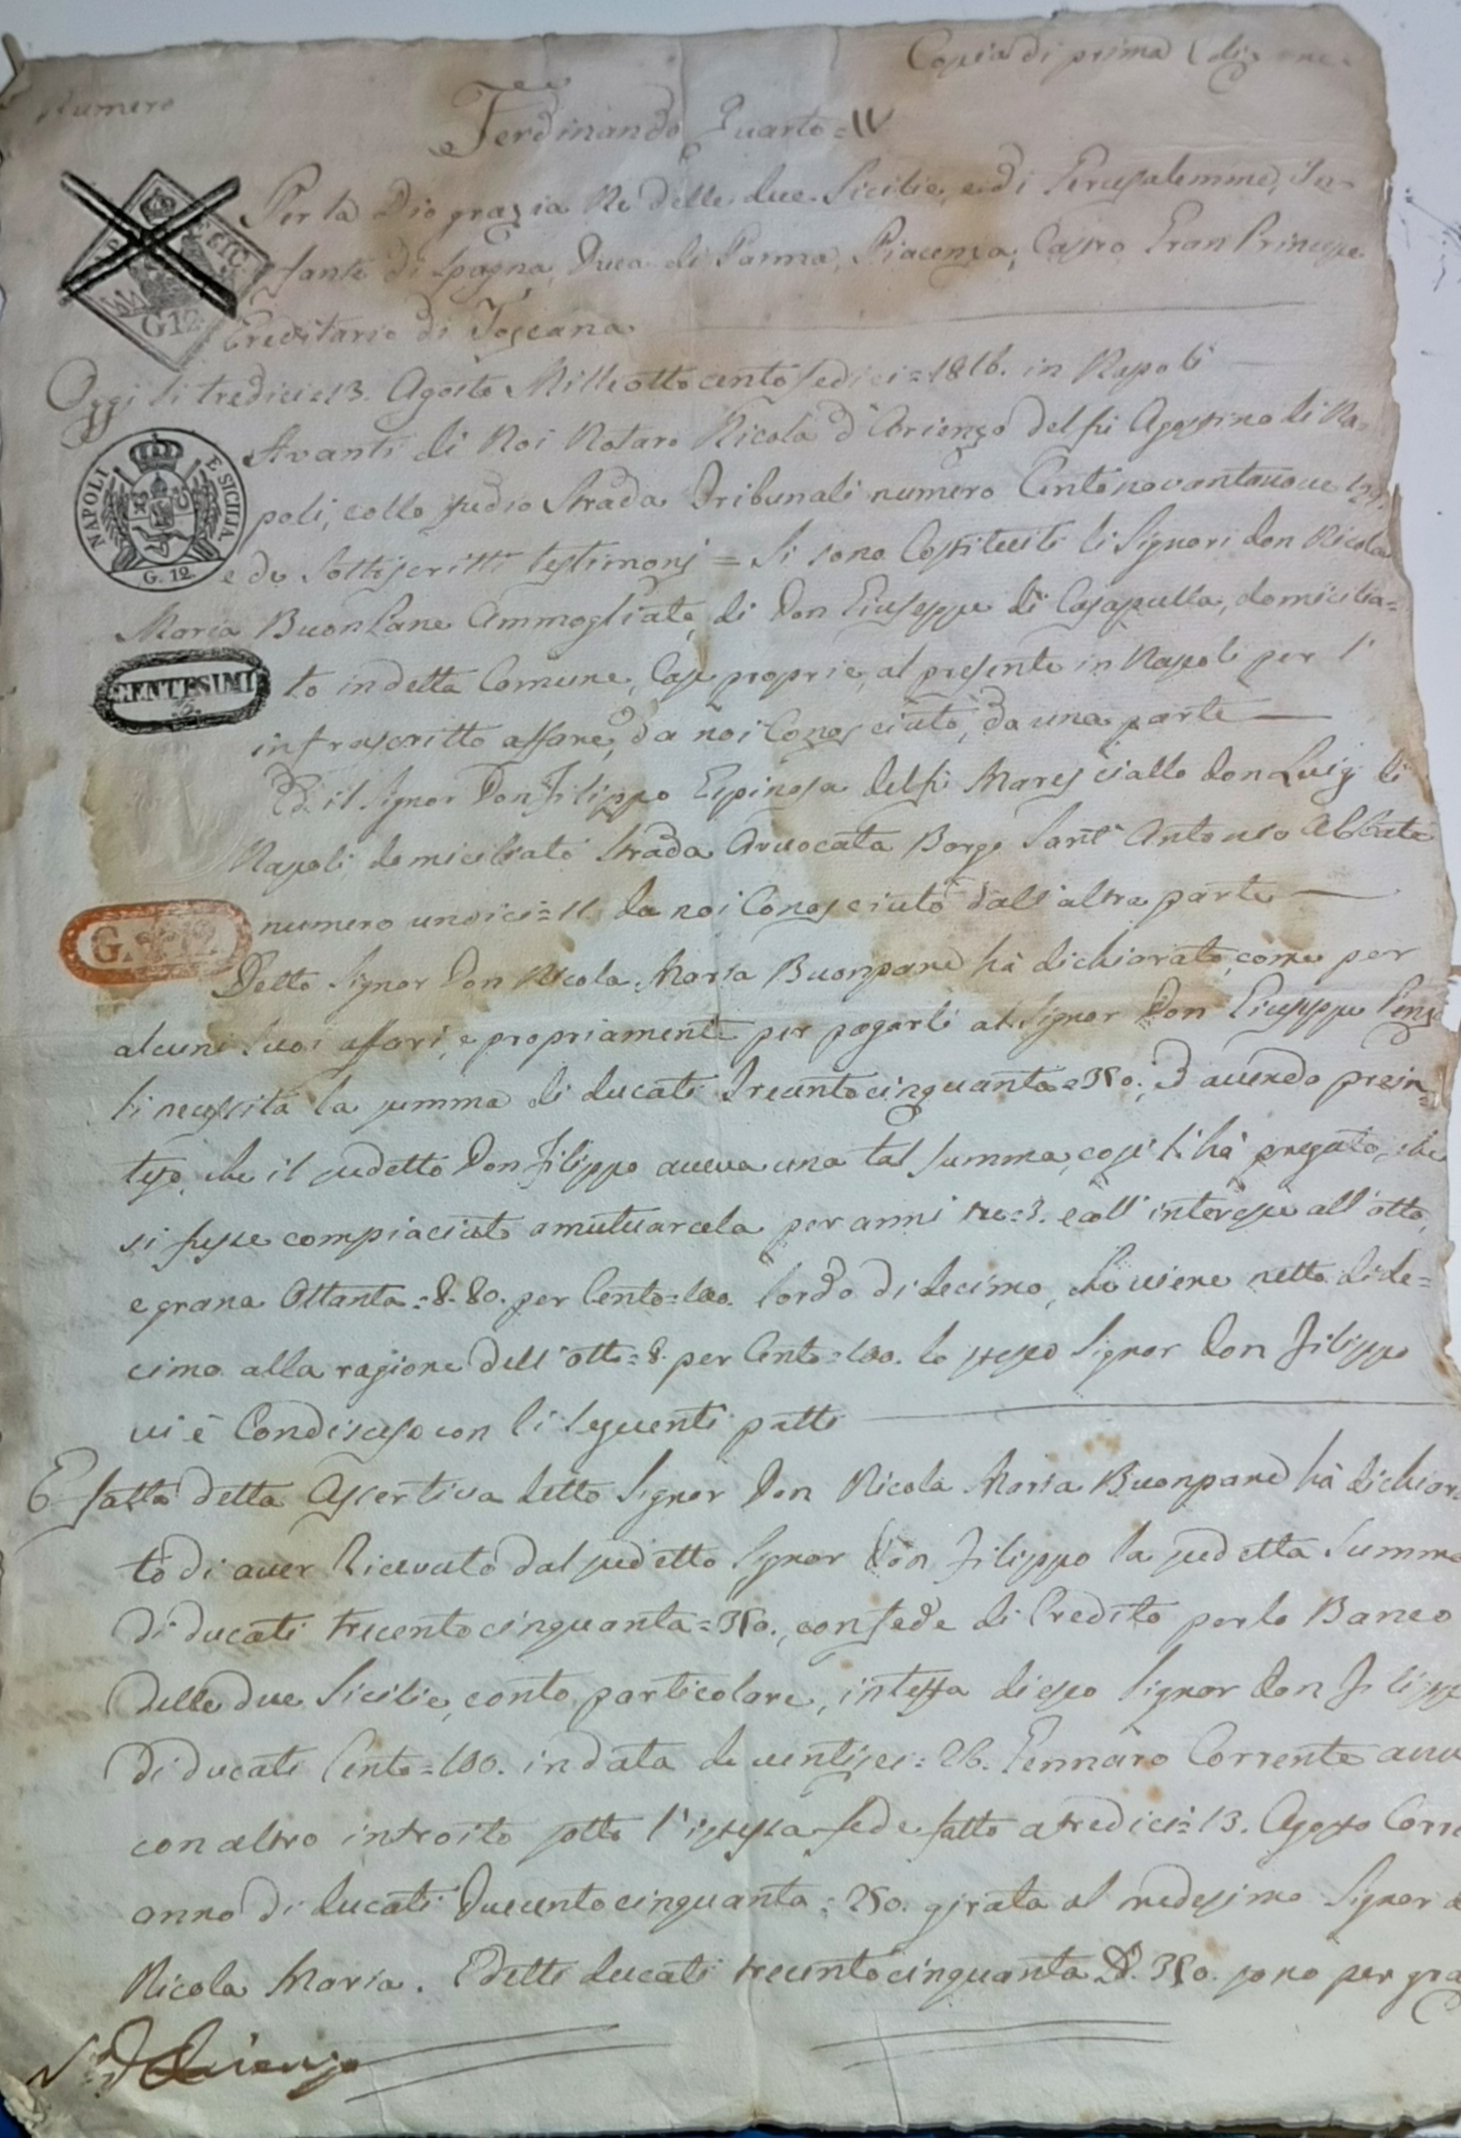 Copia di prima Ediz
Numero
Ferdinando Quarto = IV
Per la Dio grazia Re delle due Sicilie, e di Gerusalemme, In-
fante di Spagna, Duca di Parma, Piacenza, Castro Gran Principe
Ereditario di Toscana
Oggi li tredici = 13. Agosto Mille ottocento sedici = 1816. in Napoli
NAPOLI E SICILIA
G. 12.
G 12
Avanti di Noi Notaro Nicola d'Arienzo del fu Agostino di Na-
poli, collo studio Strada Tribunali numero Centonovantanove 199.
e de sottoscritti testimonj = Si sono Costituiti li Signori Don Nicola
Maria Buonpane Ammogliato, di Don Giuseppe di Casapulla, domicilia=
CENTESIMI
to in detta Comune, Case proprie, al presente in Napoli per l'
infrascritto affare, da noi Conosciuto, da una parte
Ed il Signor Don Filippo Espinosa del fu Maresciallo Don Luigi di
Napoli domiciliato Strada Avvocata Borgo Sant' Antonio Abbate
G.
numero undici = 11. da noi Conosciuto dall'altra parte
Detto Signor Don Nicola Maria Buonpane hà dichiarato, come per
alcuni suoi affari, e propriamente per pagarli al Signor Don Giuseppe
li necessita la summa di ducati Trecentocinquanta = 350., ed avendo prein=
teso, che il sudetto Don Filippo aveva una tal summa, così l'hà pregato, che
si fusse compiaciuto a mutuarcela per anni tre = 3. e coll' interesse all'otto,
e grana Ottanta = 8.80. per Cento = 100. lordo di decimo, che viene netto di de=
cimo alla ragione dell'otto = 8. per Cento = 100. lo stesso Signor Don Filippo
vi è Condisceso con li seguenti patti
E fatta detta Assertiva detto Signor Don Nicola Maria Buonpane hà dichiara
to di aver Ricevuto dal sudetto Signor Don Filippo la sudetta Summa
di ducati trecentocinquanta = 350., con fede di Credito per lo Banco
delle due Sicilie, conto particolare, in testa di esso Signor Don Filippo
di ducati Cento = 100. in data de ventisei = 26. Gennaro Corrente
con altro introito sotto l'istessa fede fatto a tredici = 13. Agosto Corre
anno di ducati Duecentocinquanta = 250. girata al medesimo Signor
Nicola Maria. E detti ducati trecentocinquanta D. 350. sono per
N. D'Arienzo